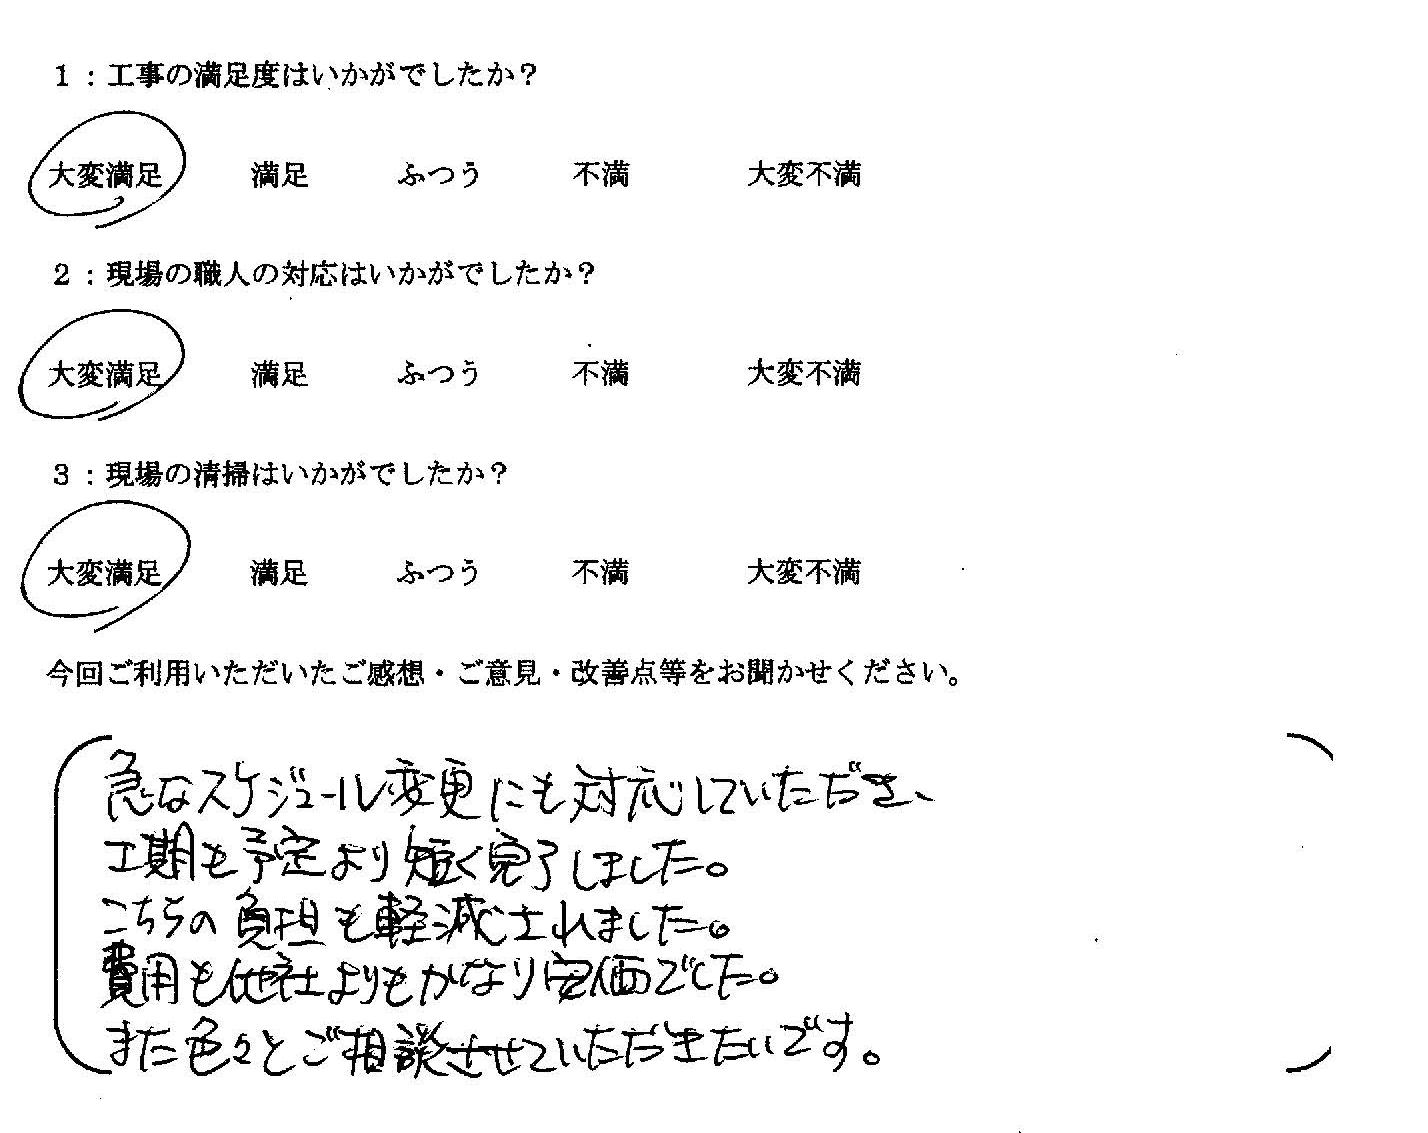 1：工事の満足度はいかがでしたか？
大変満足 満足 ふつう 不満 大変不満
2：現場の職人の対応はいかがでしたか？
大変満足 満足 ふつう 不満 大変不満
3：現場の清掃はいかがでしたか？
大変満足 満足 ふつう 不満 大変不満
今回ご利用いただいたご感想・ご意見・改善点等をお聞かせください。
急なスケジュール変更にも対応していただき、
工期も予定より短く完了しました。
こちらの負担も軽減されました。
費用も他社よりもかなり安価でした。
また色々とご相談させていただきたいです。